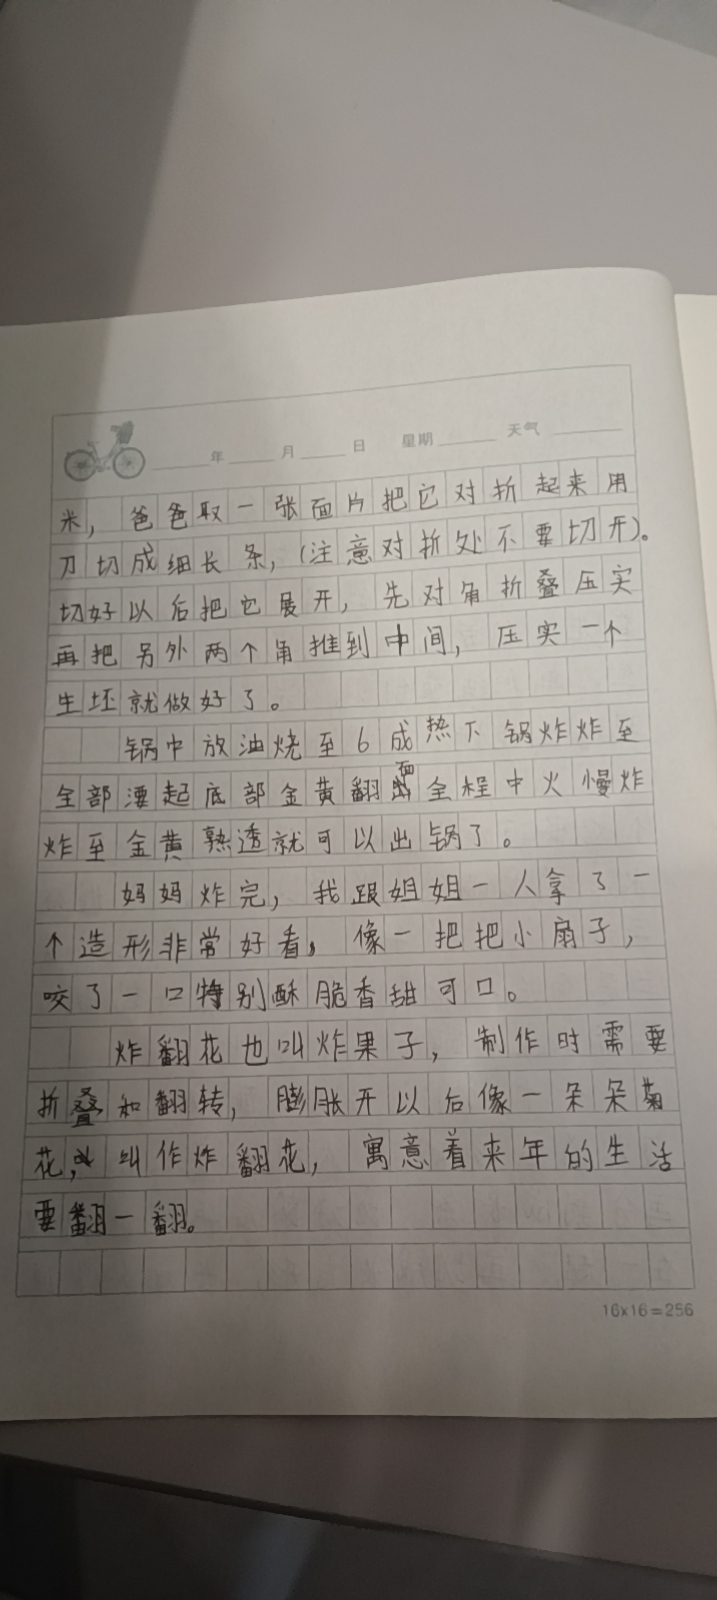 年 月 日 星期 天气
米，爸爸取一张面片把它对折起来用
刀切成细长条，(注意对折处不要切开)。
切好以后把它展开，先对角折叠压实
再把另外两个角推到中间，压实一个
生坯就做好了。
锅中放油烧至6成热下锅炸炸至
全部漂起底部金黄翻面全程中火慢炸
炸至金黄熟透就可以出锅了。
妈妈炸完，我跟姐姐一人拿了一
个造形非常好看，像一把把小扇子，
咬了一口特别酥脆香甜可口。
炸翻花也叫炸果子，制作时需要
折叠和翻转，膨胀开以后像一朵朵菊
花，叫作炸翻花，寓意着来年的生活
要翻一翻。
16x16=256